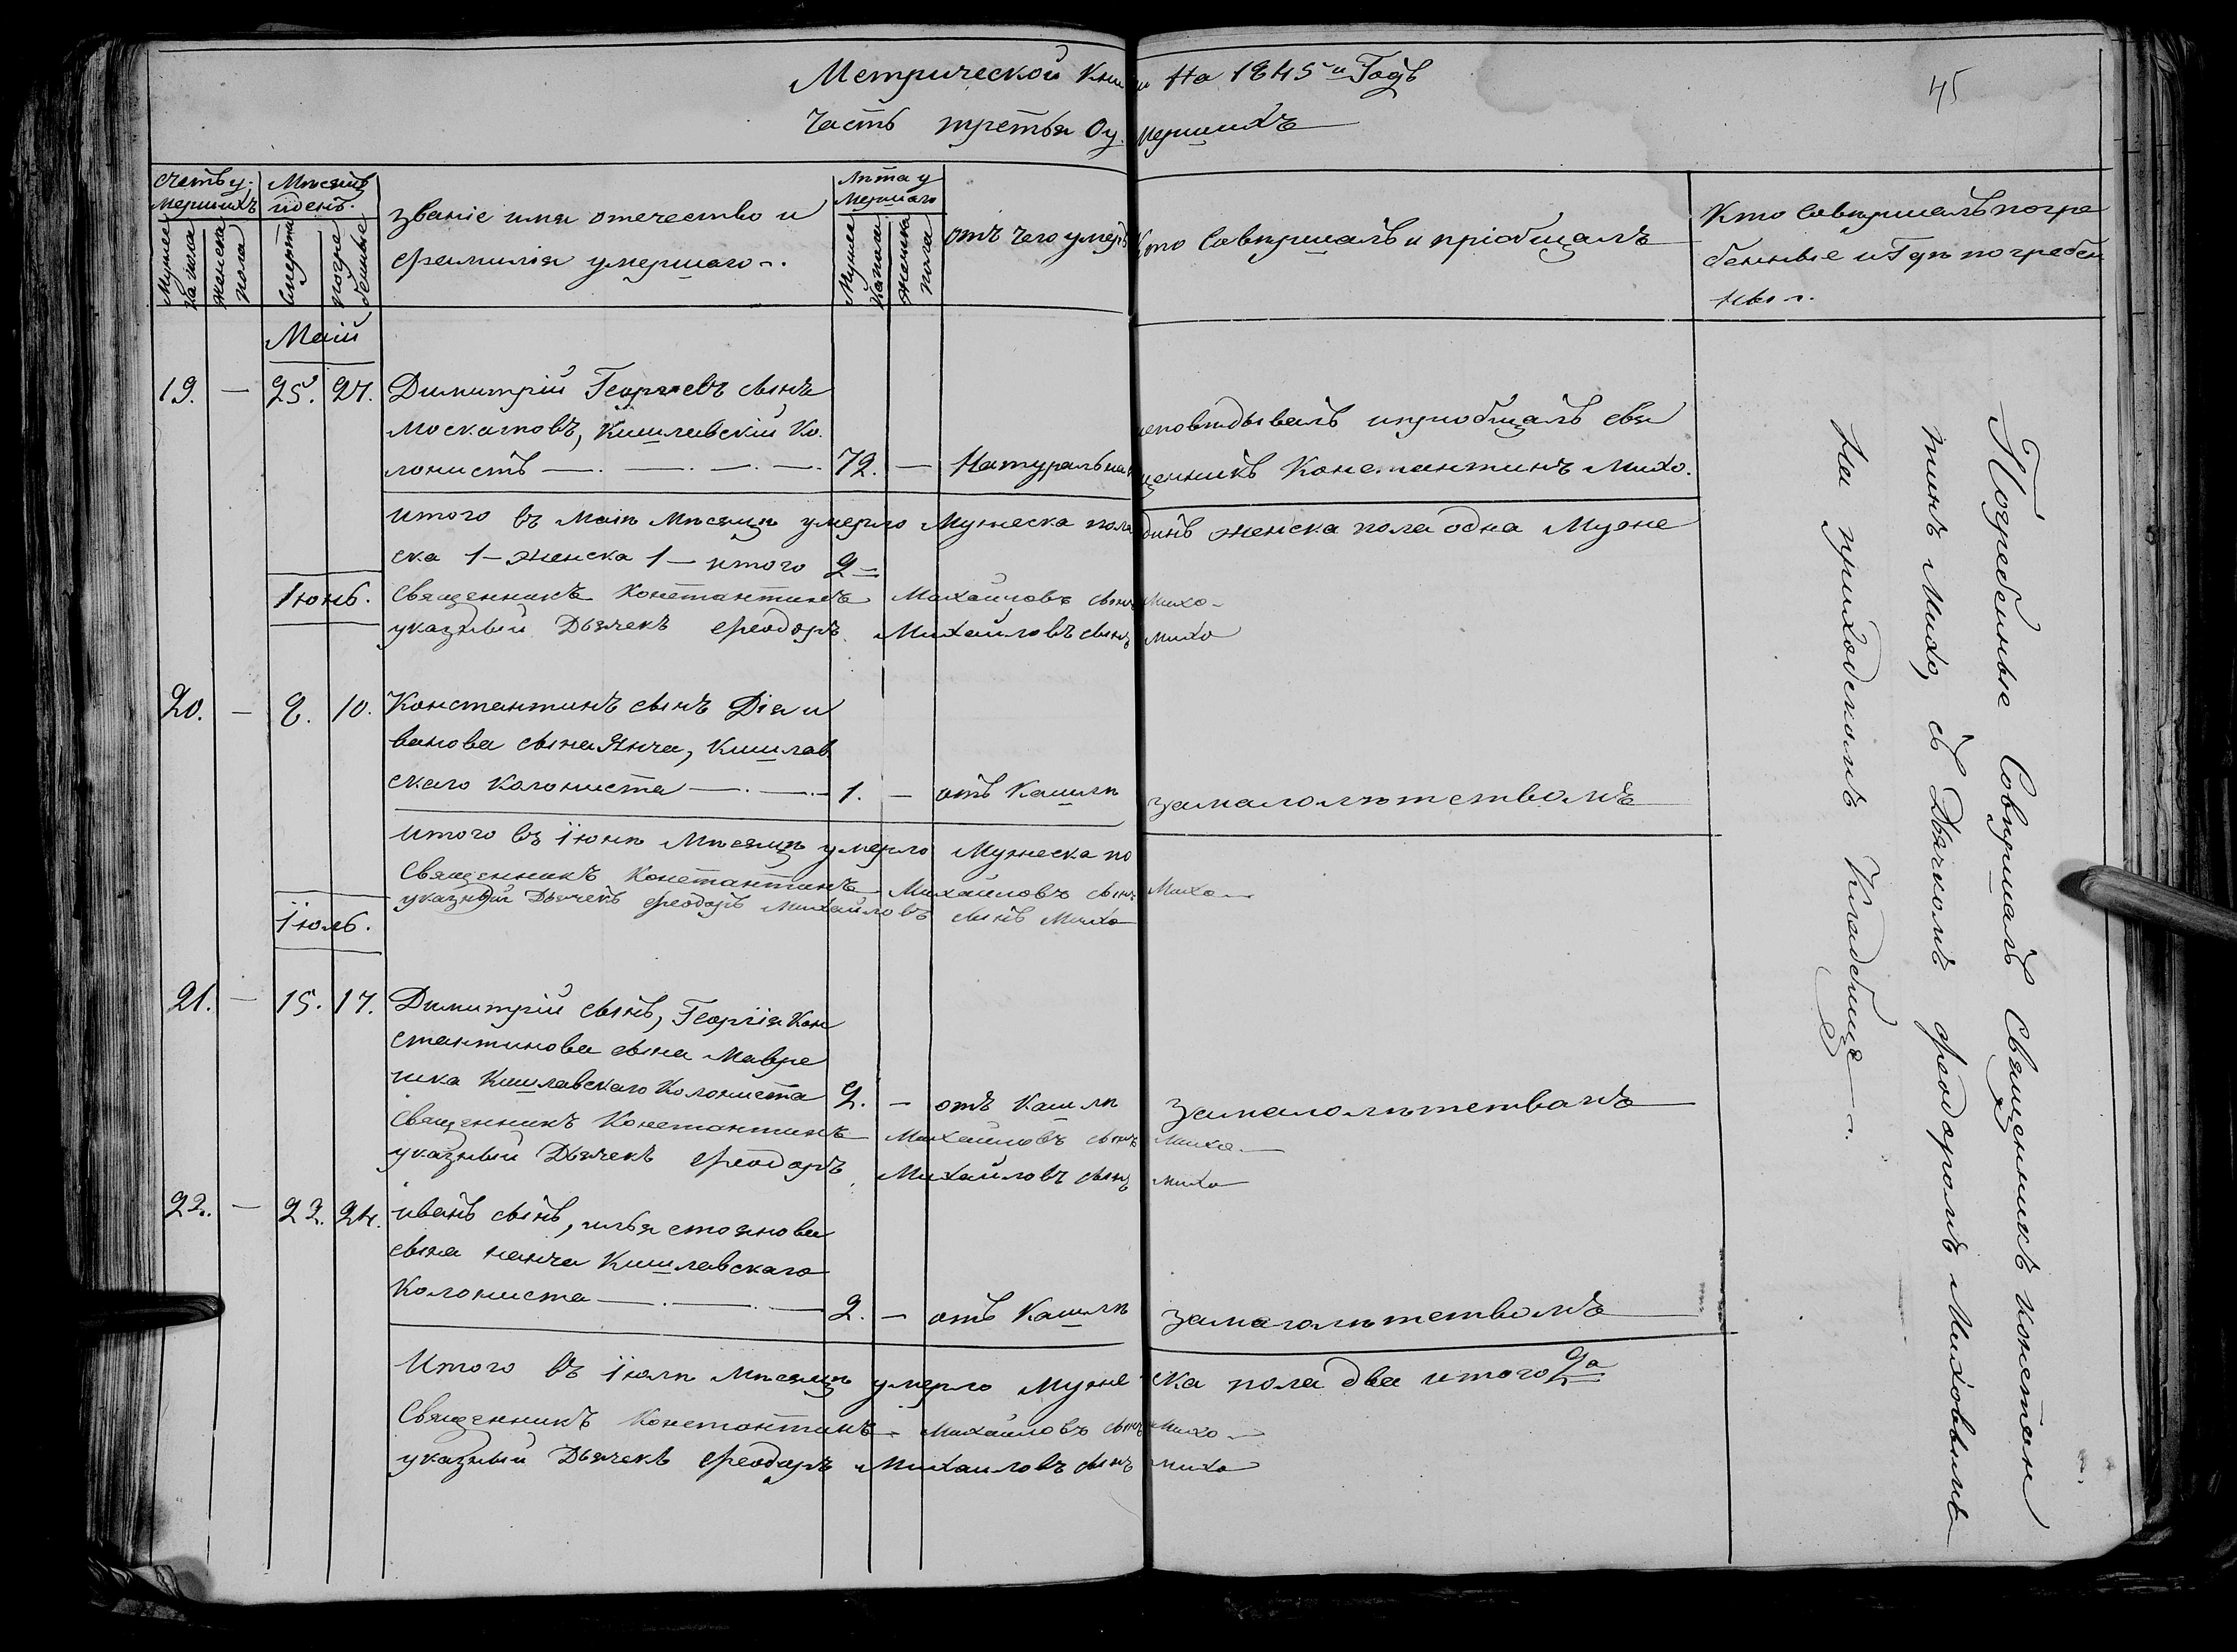 Метрической Кни и на 1845й Годъ
Часть третья О у мершихъ
45
Счетъ у мершихъ
Мужеска пола
Женска пола
Мѣсяцъ и день.
Смерти
погребенные
Званіе имя отечество и
фамилія умершаго
Лѣта у мершаго
Мужеска пола
Женска пола
отъ чего умеръ
Кто Совершалъ и пріобщалъ
Кто Совершалъ погре
бенные и Гдѣ погребе
ны
Маій
19. — 25. 27. Димитрій Георгіевъ сынъ
Москатовъ, Кишлавскій Ко
лонистъ — 72. — Натурально
исповѣдывалъ и приобщалъ свя
щенникъ Константинъ Михо.
итого въ маіи Мѣсяцѣ умерло Мужеска пола одинъ женска пола одна Муже
ска 1 — женска 1 — итого 2 =
Священникъ Константинъ Михайловъ сынъ Михо
указный Дьячекъ Феодоръ Михайловъ сынъ Михо
Іюнь.
20. — 8. 10. Константинъ сынъ Дія и
ванова сына Янча, Кишлав
скаго колониста — 1. — отъ Кашли замалолѣтствомъ
итого въ Іюнѣ Мѣсяцѣ умерло Мужеска по
Священникъ Константинъ Михайловъ сынъ Михо
указный Дьячекъ Феодоръ Михайловъ сынъ Михо
Іюль.
21. — 15. 17. Димитрій сынъ, Георгія Кон
стантинова сына Мавре
чика Кишлавскаго Колониста 2. — отъ Кашли замалолѣтствомъ
Священникъ Константинъ Михайловъ сынъ Михо
указный Дьячекъ Феодоръ Михайловъ сынъ Михо
22. — 22. 24. иванъ сынъ, илья стоянова
сына нанча Кишлавскаго
Колониста — 2. — отъ Кашли замалолѣтствомъ
Итого въ Іюлѣ Мѣсяцѣ умерло Муже ска пола два итого 2а
Священникъ Константинъ Михайловъ сынъ Михо
указный Дьячекъ Феодоръ Михайловъ сынъ Михо
Погребенные Совершалъ Священникъ констан
тинъ Михо, съ Дьячкомъ феодоромъ Миховымъ
На приходскомъ Кладбище